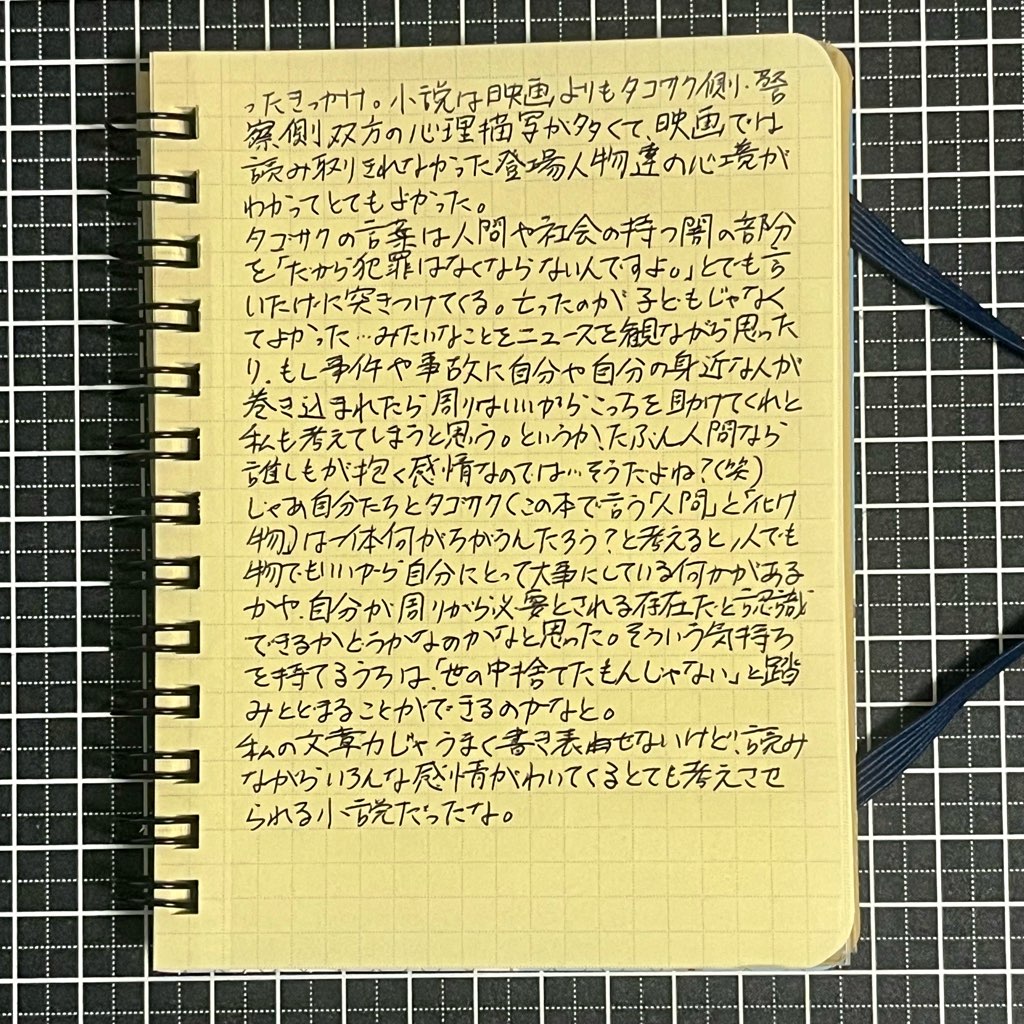 ったきっかけ。小説は映画よりもタゴサク側・警
察側双方の心理描写が多くて、映画では
読み取りきれなかった登場人物達の心境が
わかってとてもよかった。
タゴサクの言葉は人間や社会の持つ闇の部分
を「だから犯罪はなくならないんですよ。」とでも言
いたげに突きつけてくる。亡ったのが子どもじゃなく
てよかった…みたいなことをニュースを観ながら思った
り、もし事件や事故に自分や自分の身近な人が
巻き込まれたら周りはいいからこっちを助けてくれと
私も考えてしまうと思う。というか、たぶん人間なら
誰しもが抱く感情なのでは…そうだよね?(笑)
じゃあ自分たちとタゴサク(この本で言う「人間」と「化け
物」)は一体何がちがうんだろう?と考えると、人でも
物でもいいから自分にとって大事にしている何かがある
かや、自分が周りから必要とされる存在だと認識
できるかどうかなのかなと思った。そういう気持ち
を持てるうちは、「世の中捨てたもんじゃない」と踏
みとどまることができるのかなと。
私の文章力じゃうまく書き表せないけど、読み
ながらいろんな感情がわいてくるとても考えさせ
られる小説だったな。